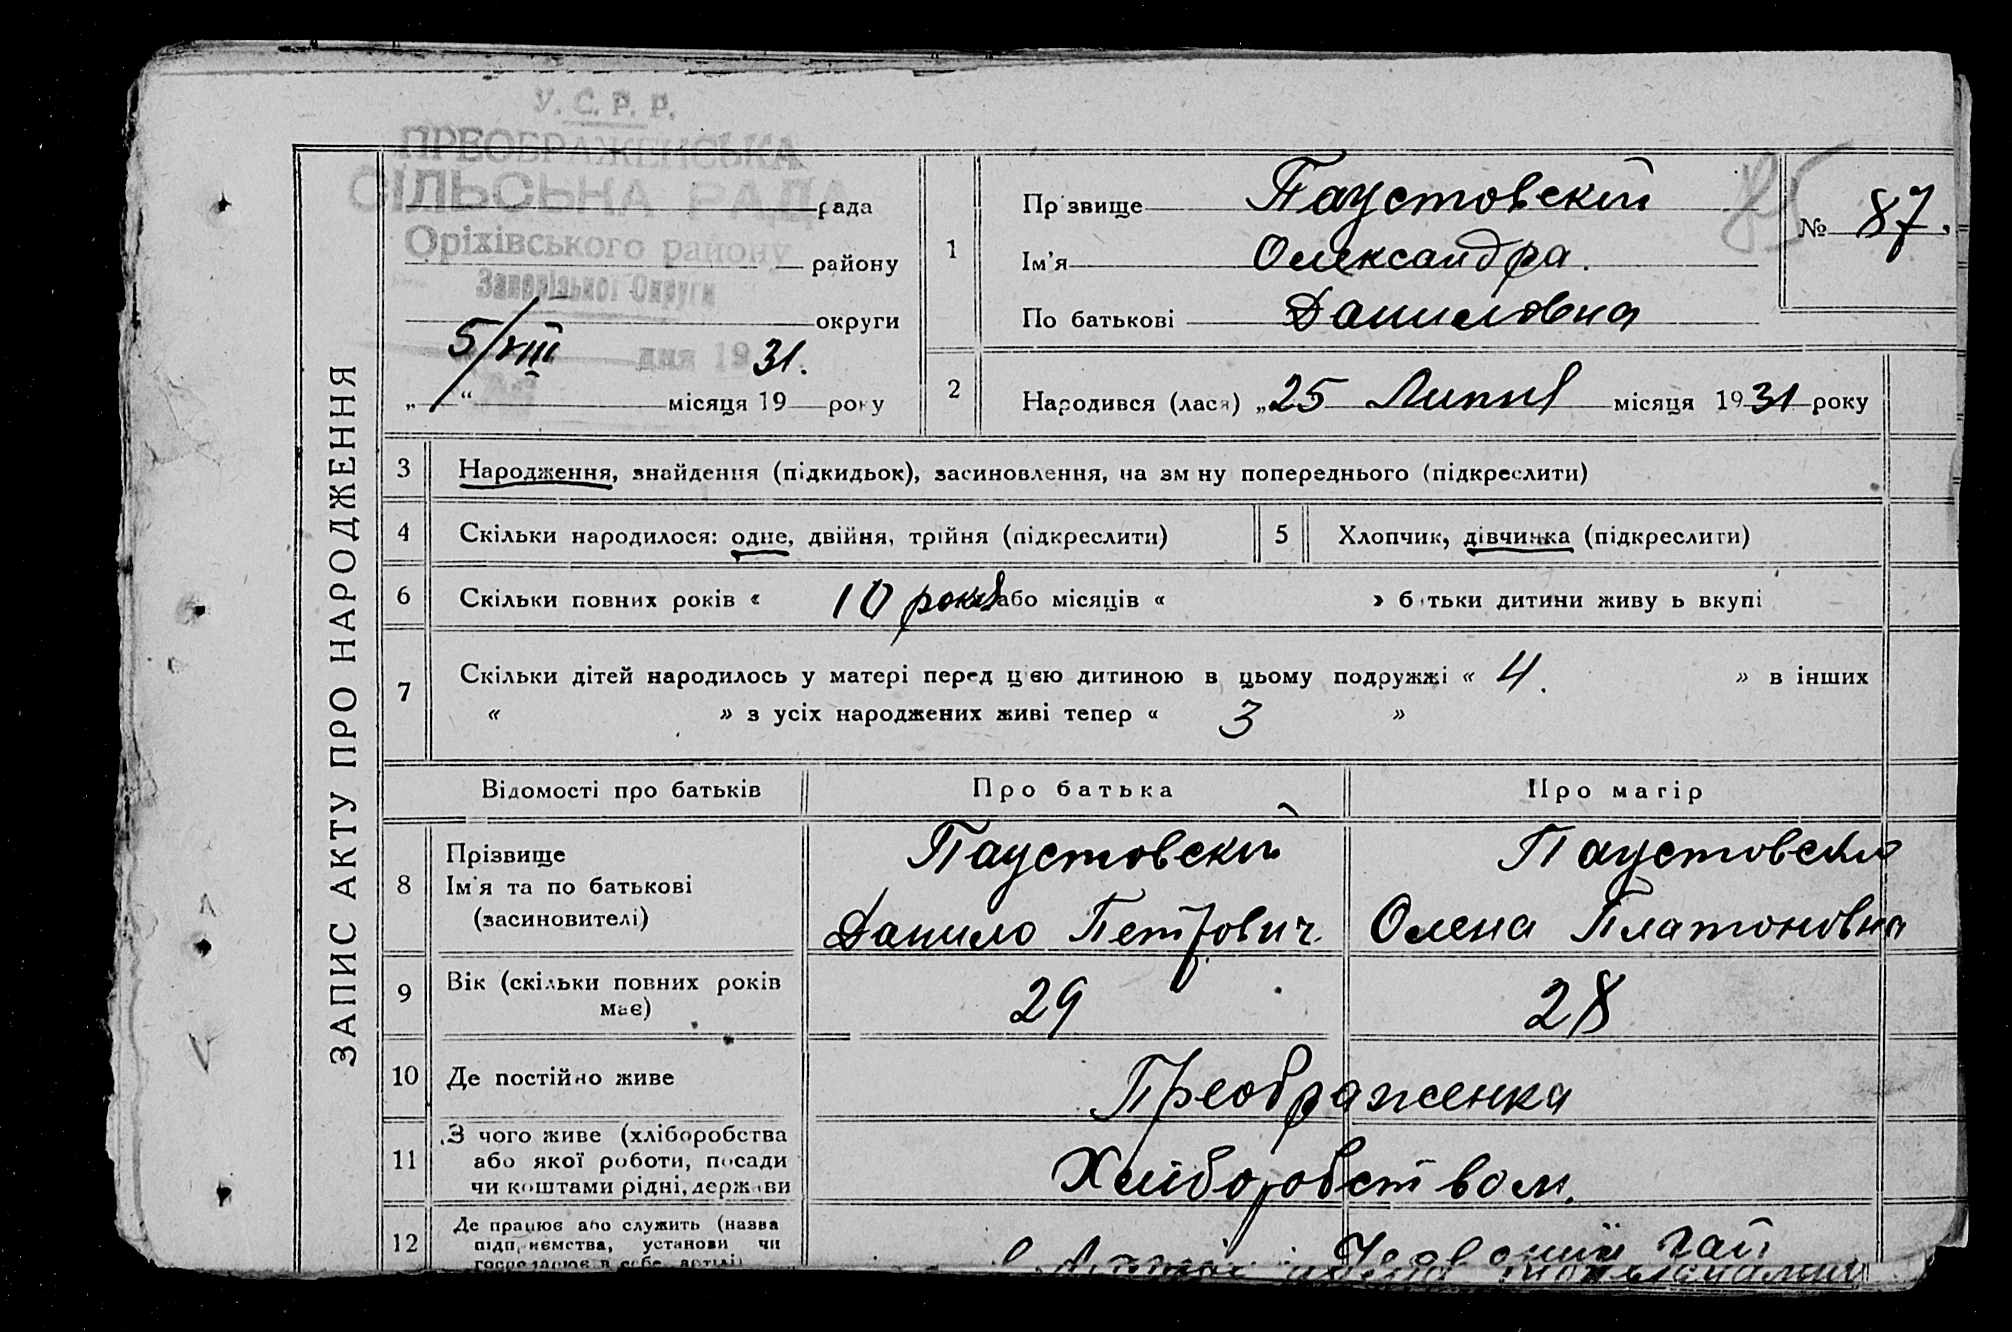 У. С. Р. Р.
ПРЕОБРАЖЕНСЬКА
СІЛЬСЬКА РАДА
рада
Оріхівського району
району
Запорізької Округи
округи
5/VIII дня 1931.
„ “ місяця 19 року
ЗАПИС АКТУ ПРО НАРОДЖЕННЯ
85
№ 87.
1
Прізвище Паустовский
Ім'я Олександра.
По батькові Даниловна
2
Народився (лася) „25 Липня місяця 1931 року
3 Народження, знайдення (підкидьок), засиновлення, на зміну попереднього (підкреслити)
4 Скільки народилося: одне, двійня, трійня (підкреслити)
5 Хлопчик, дівчинка (підкреслити)
6 Скільки повних років « 10 років або місяців « » батьки дитини живуть вкупі
7 Скільки дітей народилось у матері перед цією дитиною в цьому подружжі « 4. » в інших
« » з усіх народжених живі тепер « 3 »
Відомості про батьків Про батька Про матір
8 Прізвище
Ім'я та по батькові
(засиновителі)
Паустовский
Данило Петрович
Паустовська
Олена Платоновна
9 Вік (скільки повних років
має)
29 28
10 Де постійно живе Преображенка
11 З чого живе (хліборобства
або якої роботи, посади
чи коштами рідні, держави
Хліборобством.
12 Де працює або служить (назва
підприємства, установи чи
господарює в себе, артілі)
Червоний Гай